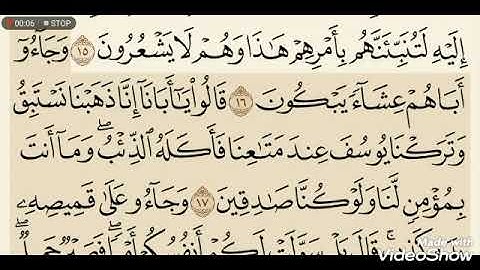 00:06 STOP
إِلَيْهِ لَتُنَبِّئَنَّهُم بِأَمْرِهِمْ هَٰذَا وَهُمْ لَا يَشْعُرُونَ ١٥ وَجَآءُوٓ
أَبَاهُمْ عِشَآءً يَبْكُونَ ١٦ قَالُوا۟ يَٰٓأَبَانَآ إِنَّا ذَهَبْنَا نَسْتَبِقُ
وَتَرَكْنَا يُوسُفَ عِندَ مَتَٰعِنَا فَأَكَلَهُ ٱلذِّئْبُ ۖ وَمَآ أَنتَ
بِمُؤْمِنٍ لَّنَا وَلَوْ كُنَّا صَٰدِقِينَ ١٧ وَجَآءُو عَلَىٰ قَمِيصِهِۦ
قَالَ بَلْ سَوَّلَتْ لَكُمْ أَنفُسُكُمْ أَمْرًا ۖ فَصَبْرٌ جَمِيلٌ ۖ
Made with
VideoShow